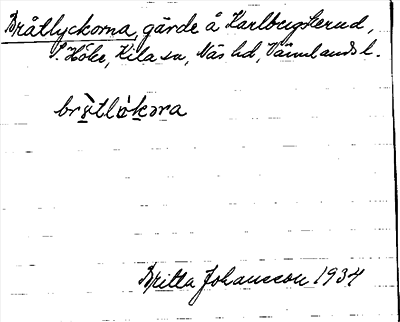 Bråtlyckorna, gärde å Karlbergskerud,
S. Höke, Kila sn, Näs hd, Värmlands l.
bròtlòkəra
Britta Johansson 1934